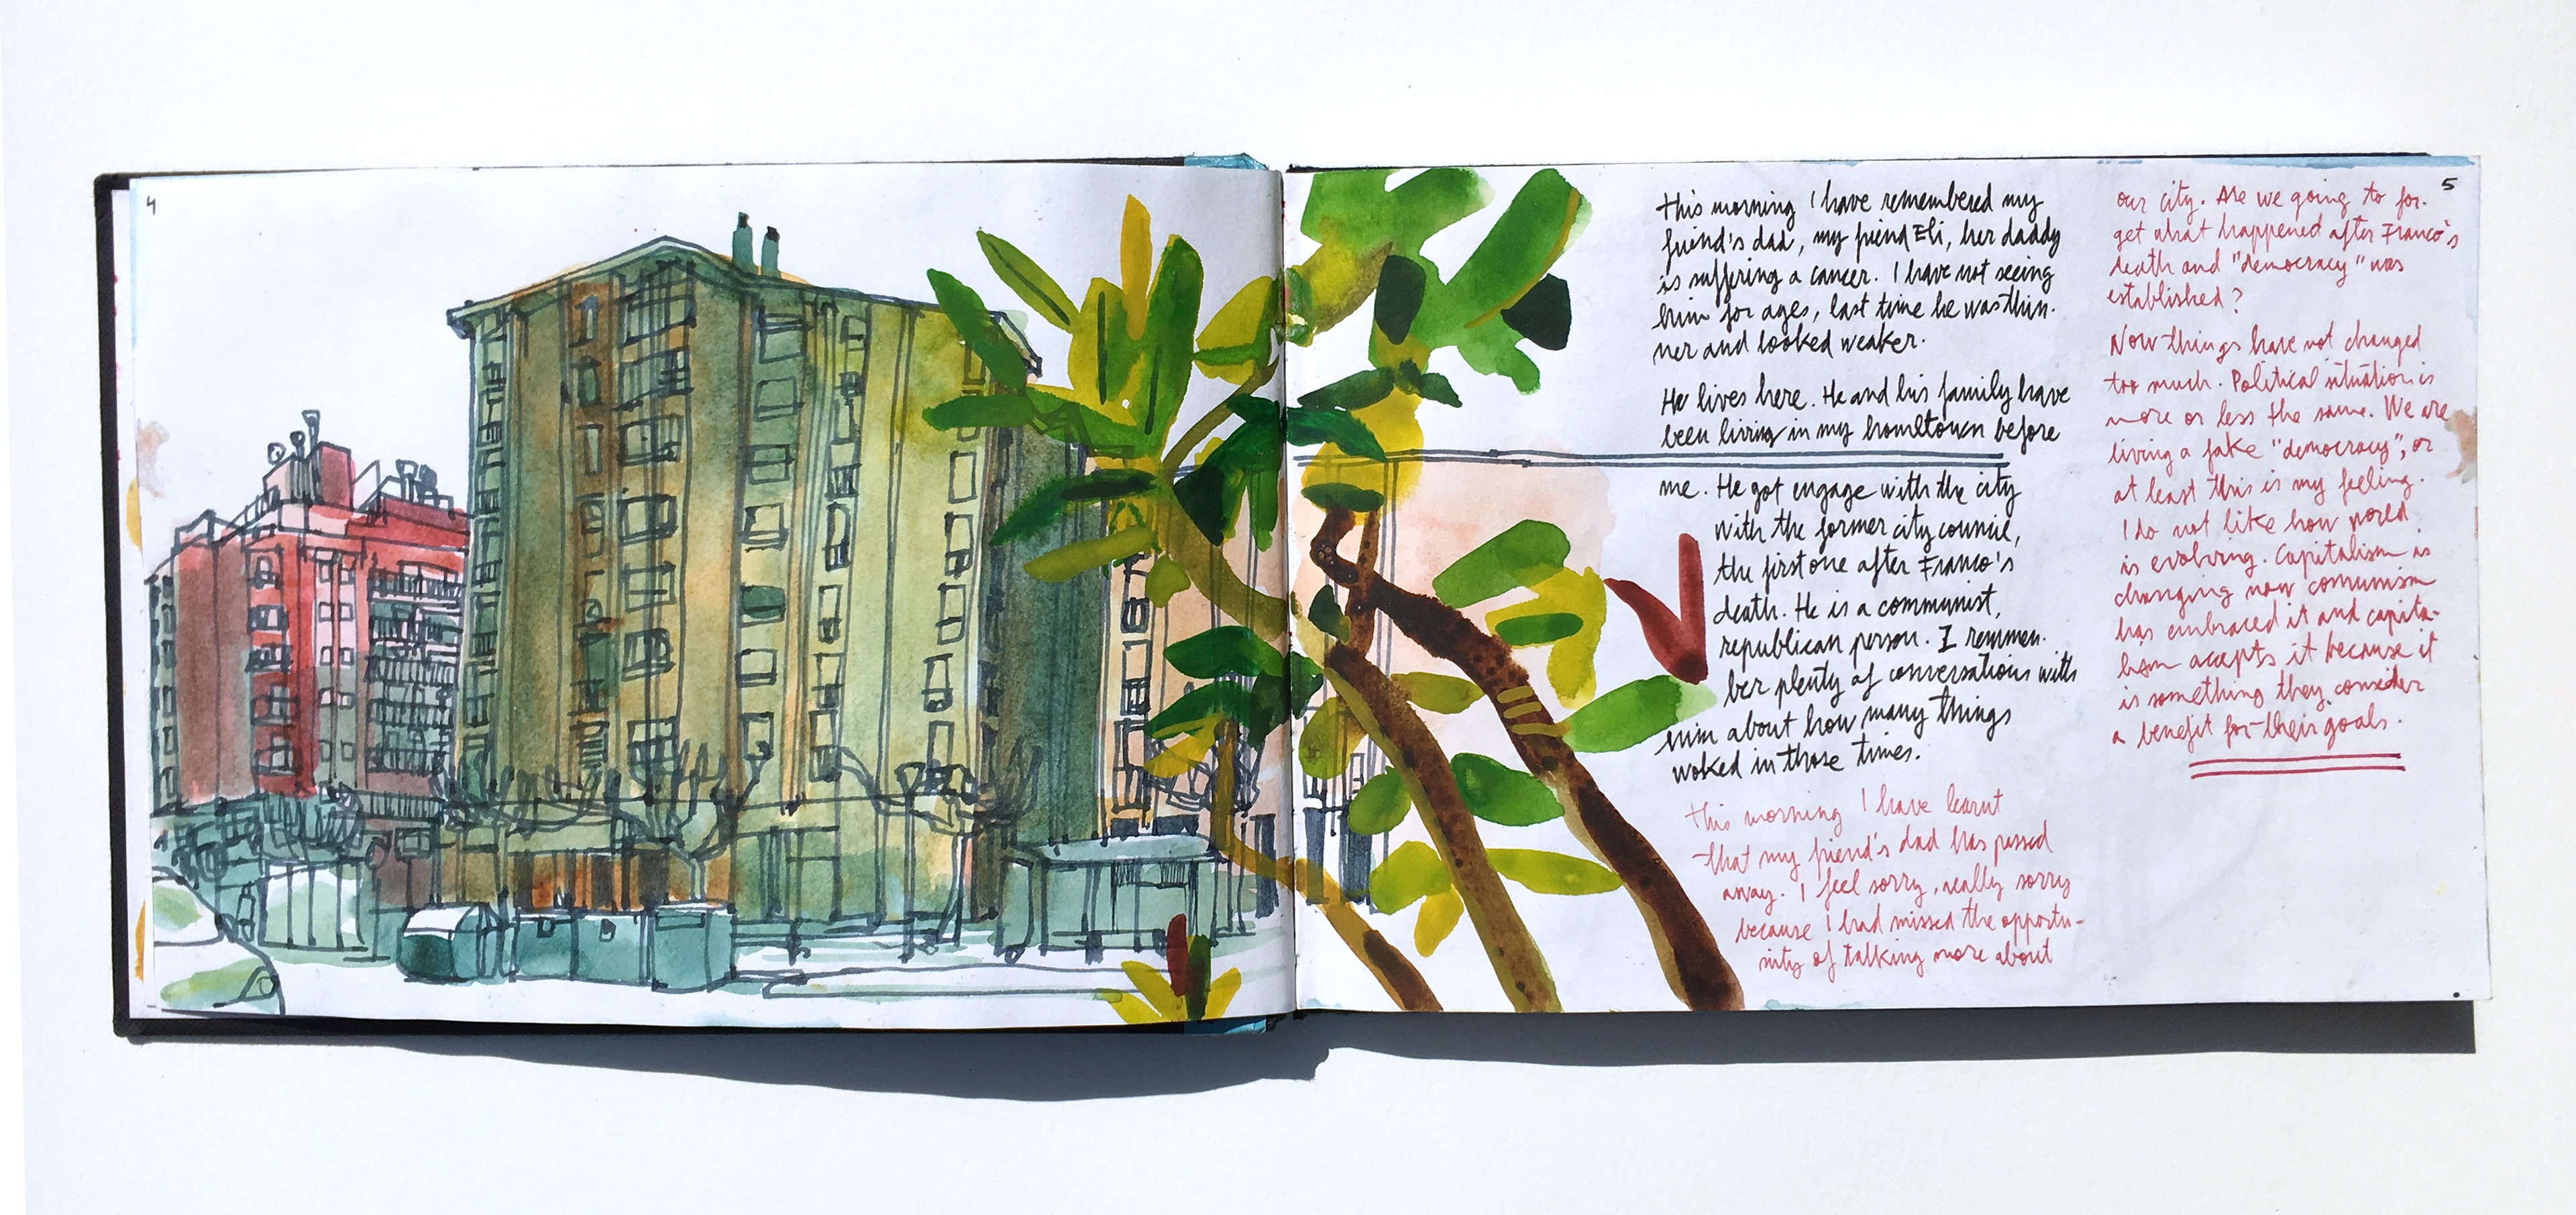 4
This morning I have remembered my
friend's dad, my friend Eli, her daddy
is suffering a cancer. I have not seeing
him for ages, last time he was thin-
ner and looked weaker.
He lives here. He and his family have
been living in my hometown before
me. He got engage with the city
with the former city council,
the first one after Franco's
death. He is a communist,
republican person. I remmem-
ber plenty of conversations with
him about how many things
woked in those times.
This morning I have learnt
that my friend's dad has passed
away. I feel sorry, really sorry
because I had missed the opportu-
nity of talking more about
5
our city. Are we going to for-
get what happened after Franco's
death and "democracy" was
established?
Now things have not changed
too much. Political situation is
more or less the same. We are
living a fake "democracy", or
at least this is my feeling.
I do not like how
is evolving. Capitalism is
changing now comunism
has embraced it and capita-
lism accepts it because it
is something they consider
a benefit for their goals.